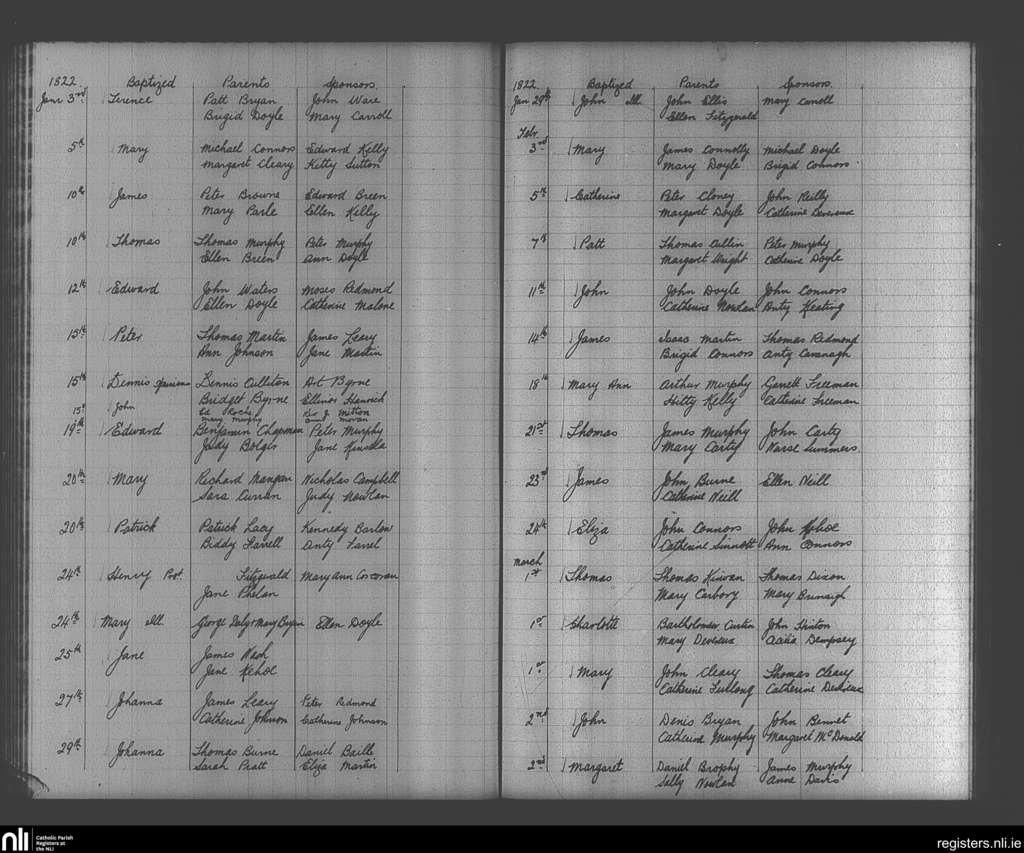 1822 Baptized Parents Sponsors
Janr 3rd Terence Patt Bryan John Ware
Brigid Doyle Mary Carroll
5th Mary Michael Connors Edward Kelly
Margaret Cleary Kitty Sutton
10th James Peter Browne Edward Breen
Mary Parle Ellen Kelly
10th Thomas Thomas Murphy Peter Murphy
Ellen Breen Ann Doyle
12th Edward John Waters Moses Redmond
Ellen Doyle Catherine Malone
15th Peter Thomas Martin James Leary
Ann Johnson Jane Martin
15th Dennis Dennis Culleton Art Byrne
Bridget Byrne Ellinor Hanrick
15th John Ed Roche J. Mitton
Mary Murphy Moran
19th Edward Benjamin Chapman Peter Murphy
Judy Bolger Jane Kinsella
20th Mary Richard Mangan Nicholas Campbell
Sara Curran Judy Nowlan
20th Patrick Patrick Lacy Kennedy Barlow
Biddy Farrell Anty Farrel
24th Henry Prot. Fitzgerald Mary Ann Corcoran
Jane Phelan
24th Mary Ill. George Daly & Mary Bryan Ellen Doyle
25th Jane James Nash
Jane Kehoe
27th Johanna James Leary Peter Redmond
Catherine Johnson Catherine Johnson
29th Johanna Thomas Burne Daniel Baille
Sarah Pratt Eliza Martin
1822 Baptized Parents Sponsors
Jan 29th John Ill. John Ellis Mary Carroll
Ellen Fitzgerald
Febr.
3rd Mary James Connolly Michael Doyle
Mary Doyle Brigid Connors
5th Catherine Peter Cloney John Reilly
Margaret Doyle Catherine Devereux
7th Patt Thomas Cullin Peter Murphy
Margaret Wright Catherine Doyle
11th John John Doyle John Connors
Catherine Nowlan Anty Keating
14th James Isaac Martin Thomas Redmond
Brigid Connors Anty Cavanagh
18th Mary Ann Arthur Murphy Garrett Freeman
Kitty Kelly Catherine Freeman
21st Thomas James Murphy John Carty
Mary Carty Nurse Summers
23rd James John Burne Ellen Neill
Catherine Neill
24th Eliza John Connors John Kehoe
Catherine Sinnott Ann Connors
March
1st Thomas Thomas Kirwan Thomas Dixon
Mary Carbory Mary
1st Charlotte Bartholomew Curtin John Hinton
Mary Devereux Dempsey
1st Mary John Cleary Thomas Cleary
Catherine Furlong Catherine Devereux
2nd John Denis Bryan John Bennet
Catherine Murphy Margaret McDonald
2nd Margaret Daniel Brophy James Murphy
Sally Nowlan Anne Davis
nli Catholic Parish
Registers at
the NLI
registers.nli.ie